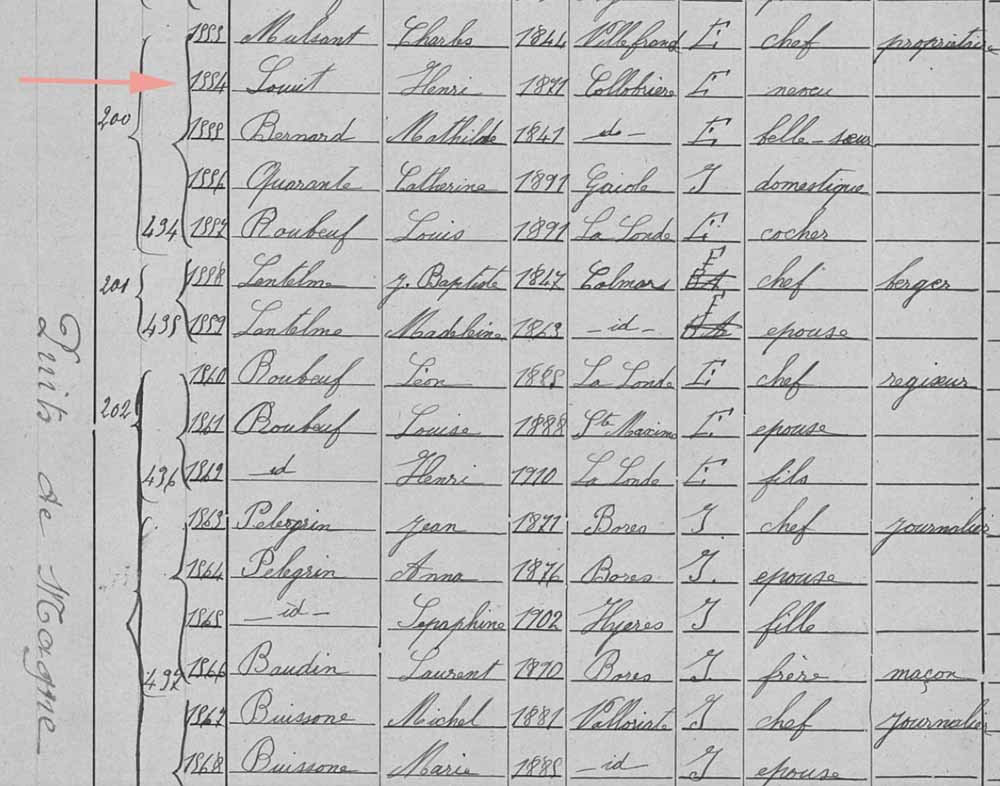 1553 Mulsant Charles 1844 Villefranc F chef propriétaire
200 1554 Louit Henri 1871 Collobrière F neveu
1555 Bernard Mathilde 1841 -d- F belle-sœur
1556 Quarante Catherine 1891 Gaiole I domestique
494 1557 Roubeuf Louis 1891 La Londe F cocher
201 1558 Lantelme J. Baptiste 1847 Colmars F chef berger
495 1559 Lantelme Madeleine 1863 -id- F epouse
1560 Roubeuf Léon 1885 La Londe F chef regisseur
202 1561 Roubeuf Louise 1888 Ste Maxime F epouse
496 1562 id Henri 1910 La Londe F fils
1563 Pelegrin Jean 1871 Bores I chef journalier
1564 Pelegrin Anna 1876 Bores I. epouse
1565 -id- Separhine 1902 Hyeres I fille
497 1566 Baudin Laurent 1870 Bores I frère maçon
1567 Buissone Michel 1881 Valloriate I chef journalier
1568 Buissone Marie 1885 -id- I epouse
Puits de Magne